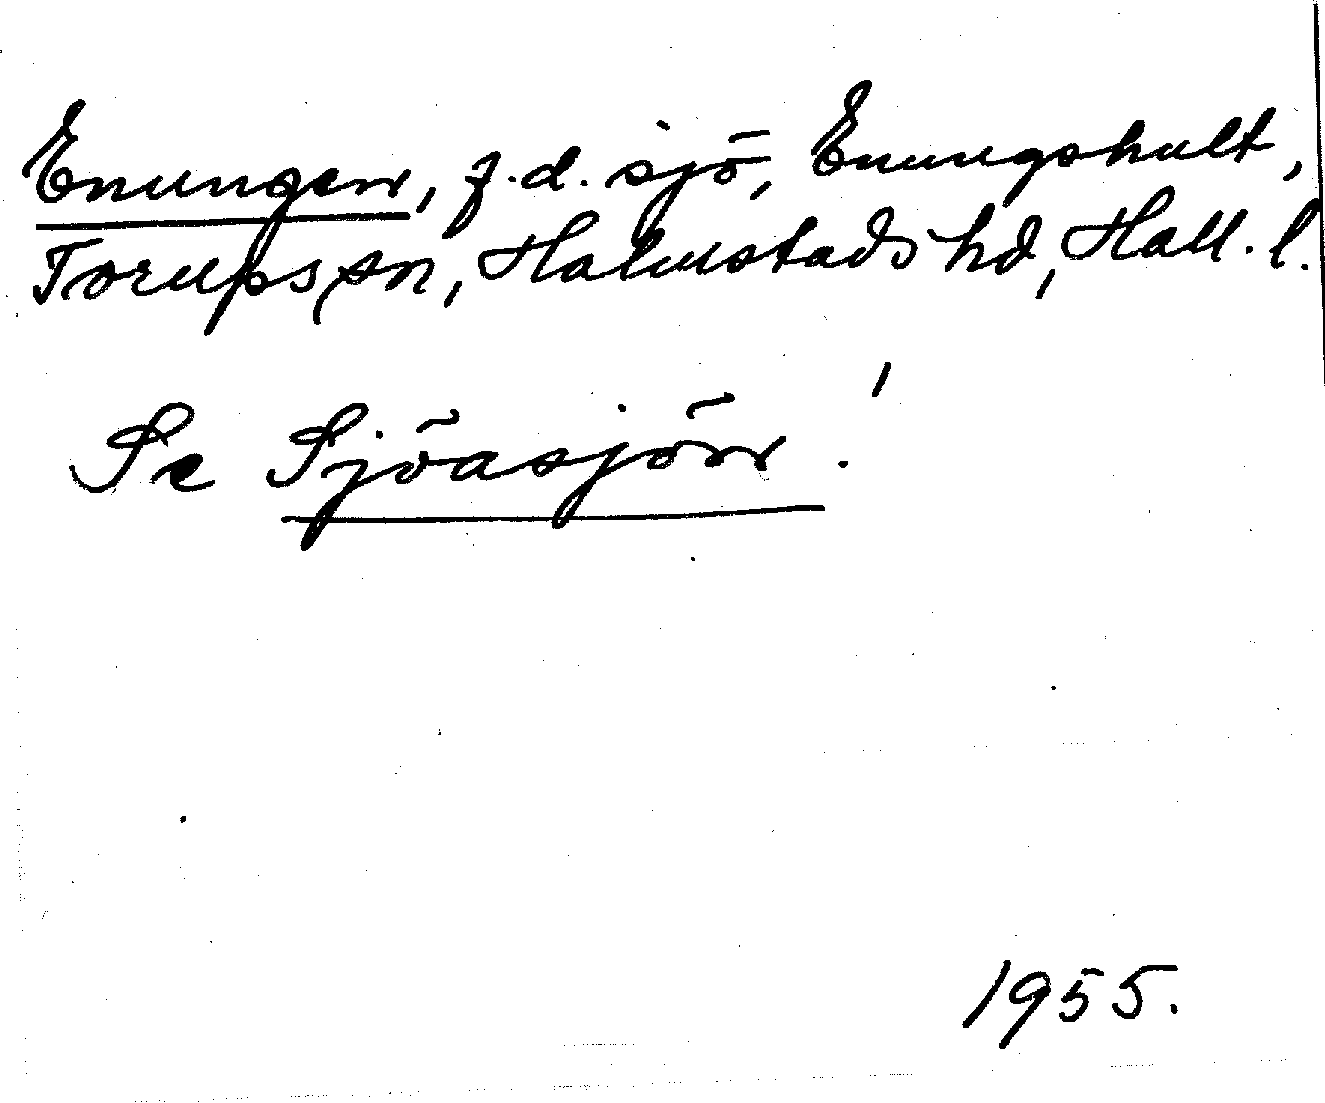 Enungen, f.d. sjö, Enungshult,
Torups sn, Halmstads hd, Hall. l.
Se Sjöasjön!
1955.